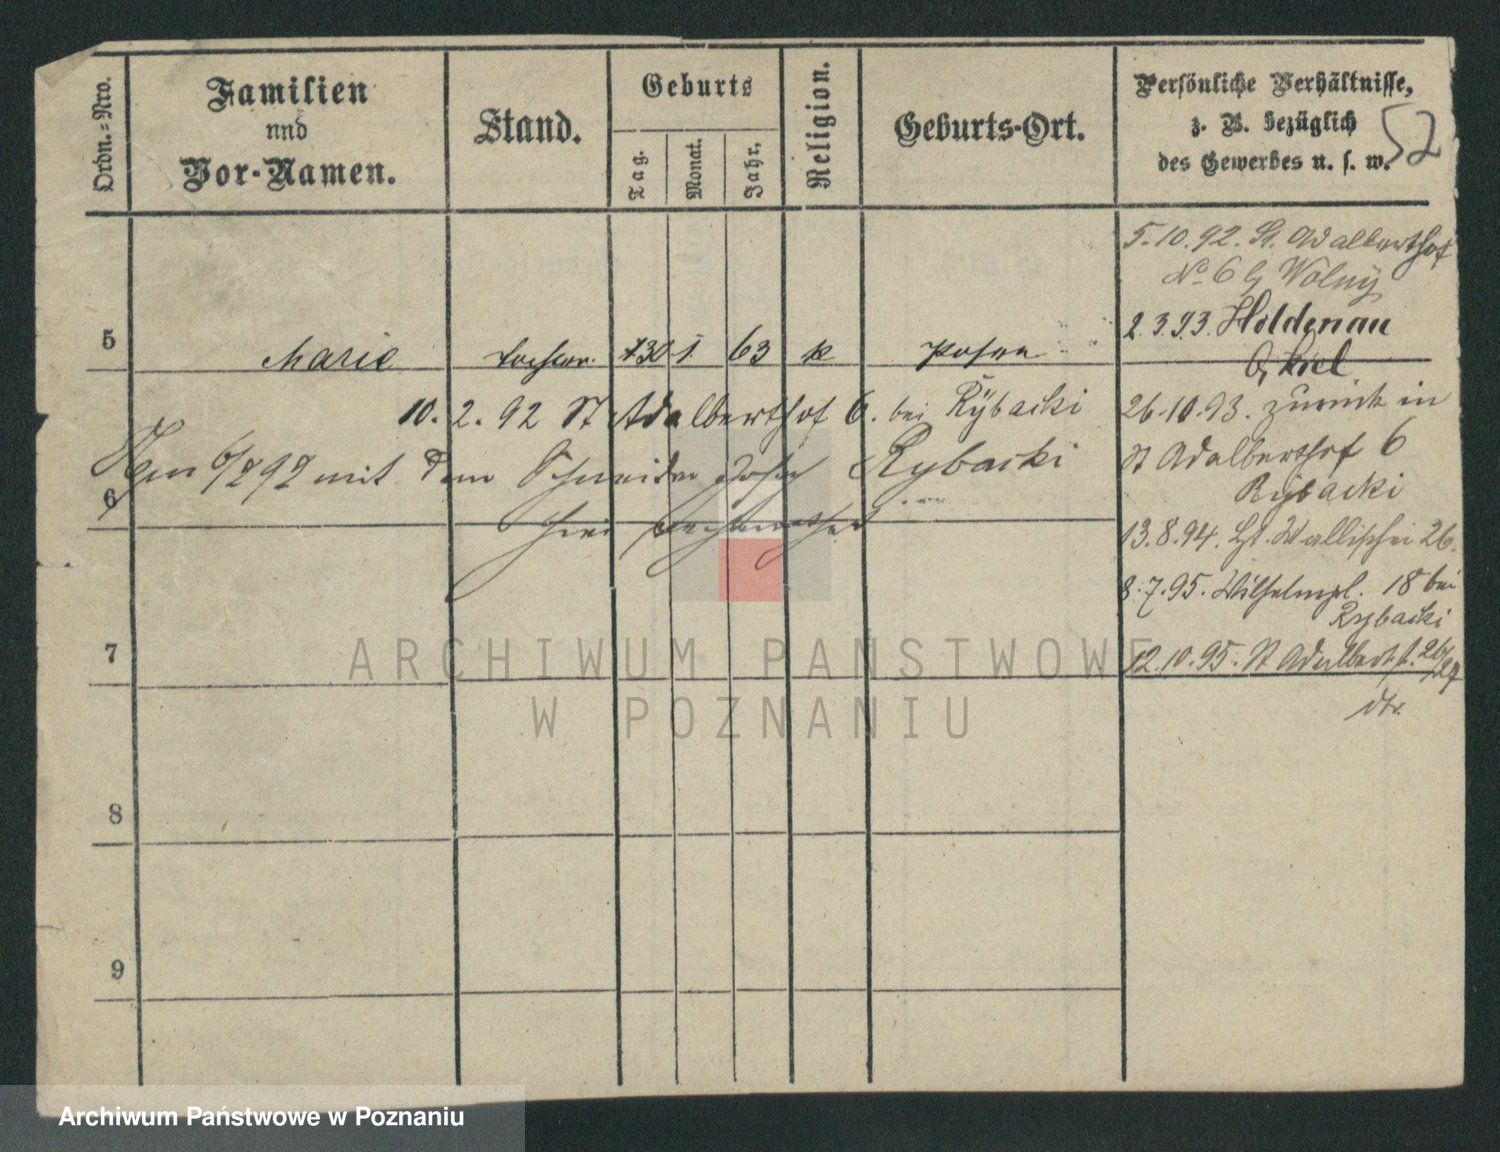 Ordn.=Nro.
Familien
und
Vor-Namen.
Stand.
Geburts
Tag.
Monat.
Jahr.
Religion.
Geburts-Ort.
Persönliche Verhältnisse,
z. B. bezüglich
des Gewerbes u. s. w.
52
5.10.92. St. Adalberthof
No 6 b/ Wolny
2.3.93. Holdenau
b/ Kiel
5 Marie Tochter 30 1 63 k Posen
10. 2. 92 St Adalberthof 6. bei Rybacki
26.10.93. zurück in
St Adalberthof 6
Rybacki
mit dem Schneider Josef Rybacki
hier
6
13.8.94. Wallischei 26.
8.7.95. Wilhelmpl. 18 bei
Rybacki
12.10.95. St Adalbertst. 26/27
7
8
9
ARCHIWUM PAŃSTWOWE
W POZNANIU
Archiwum Państwowe w Poznaniu